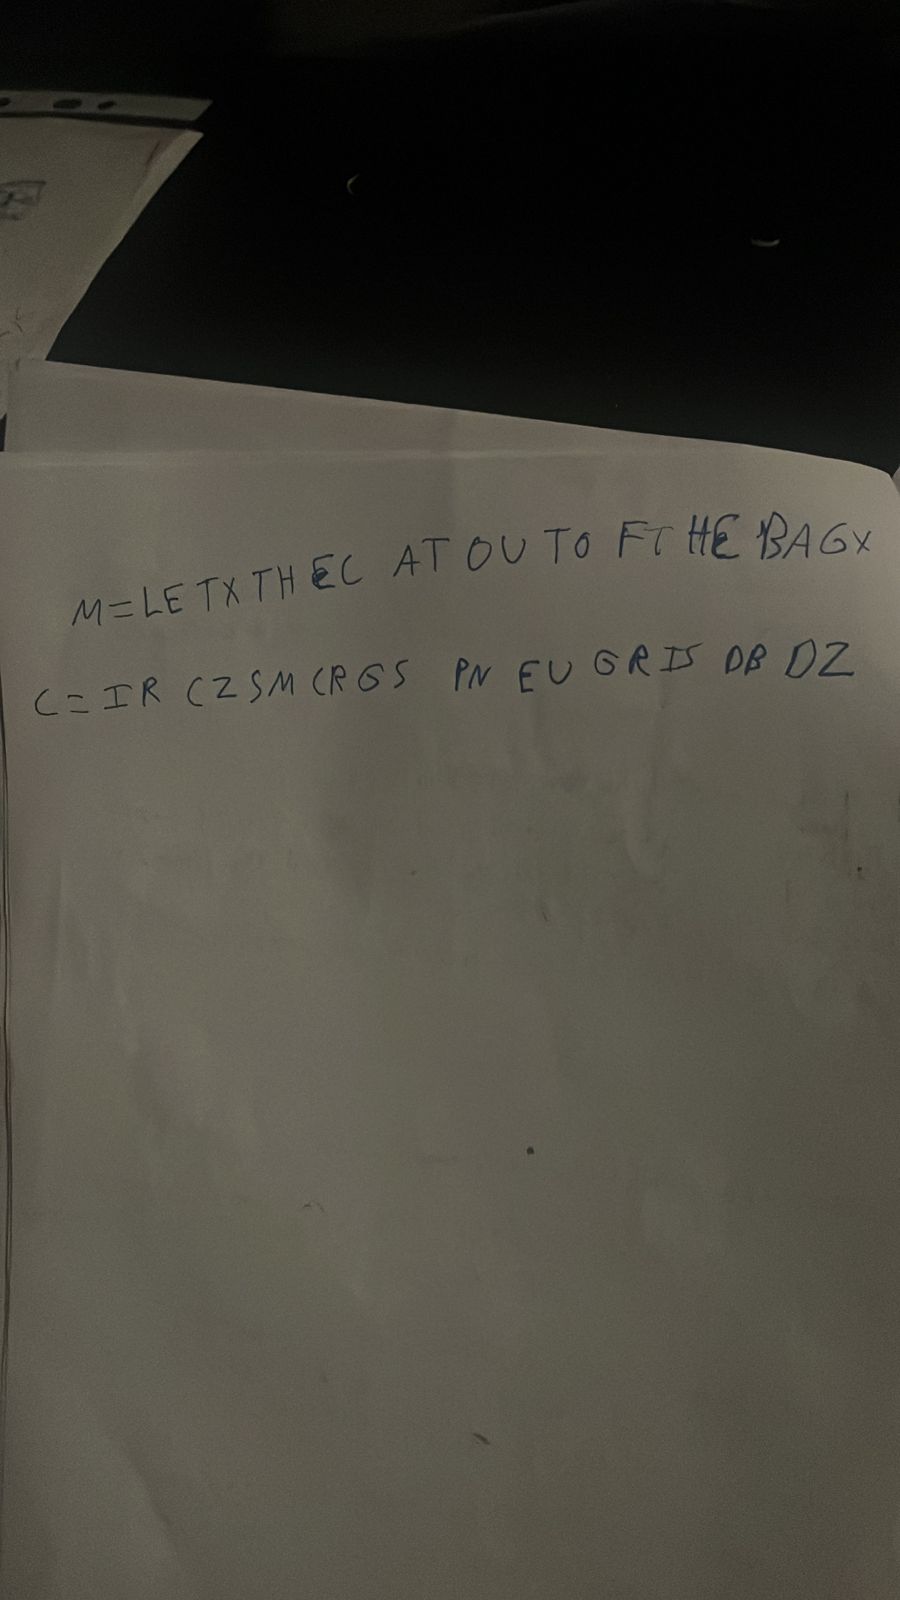 M=LE TX TH EC AT OU TO FT HE BAGX
C=IR CZ SM CR GS PN EU GR IS DB DZ